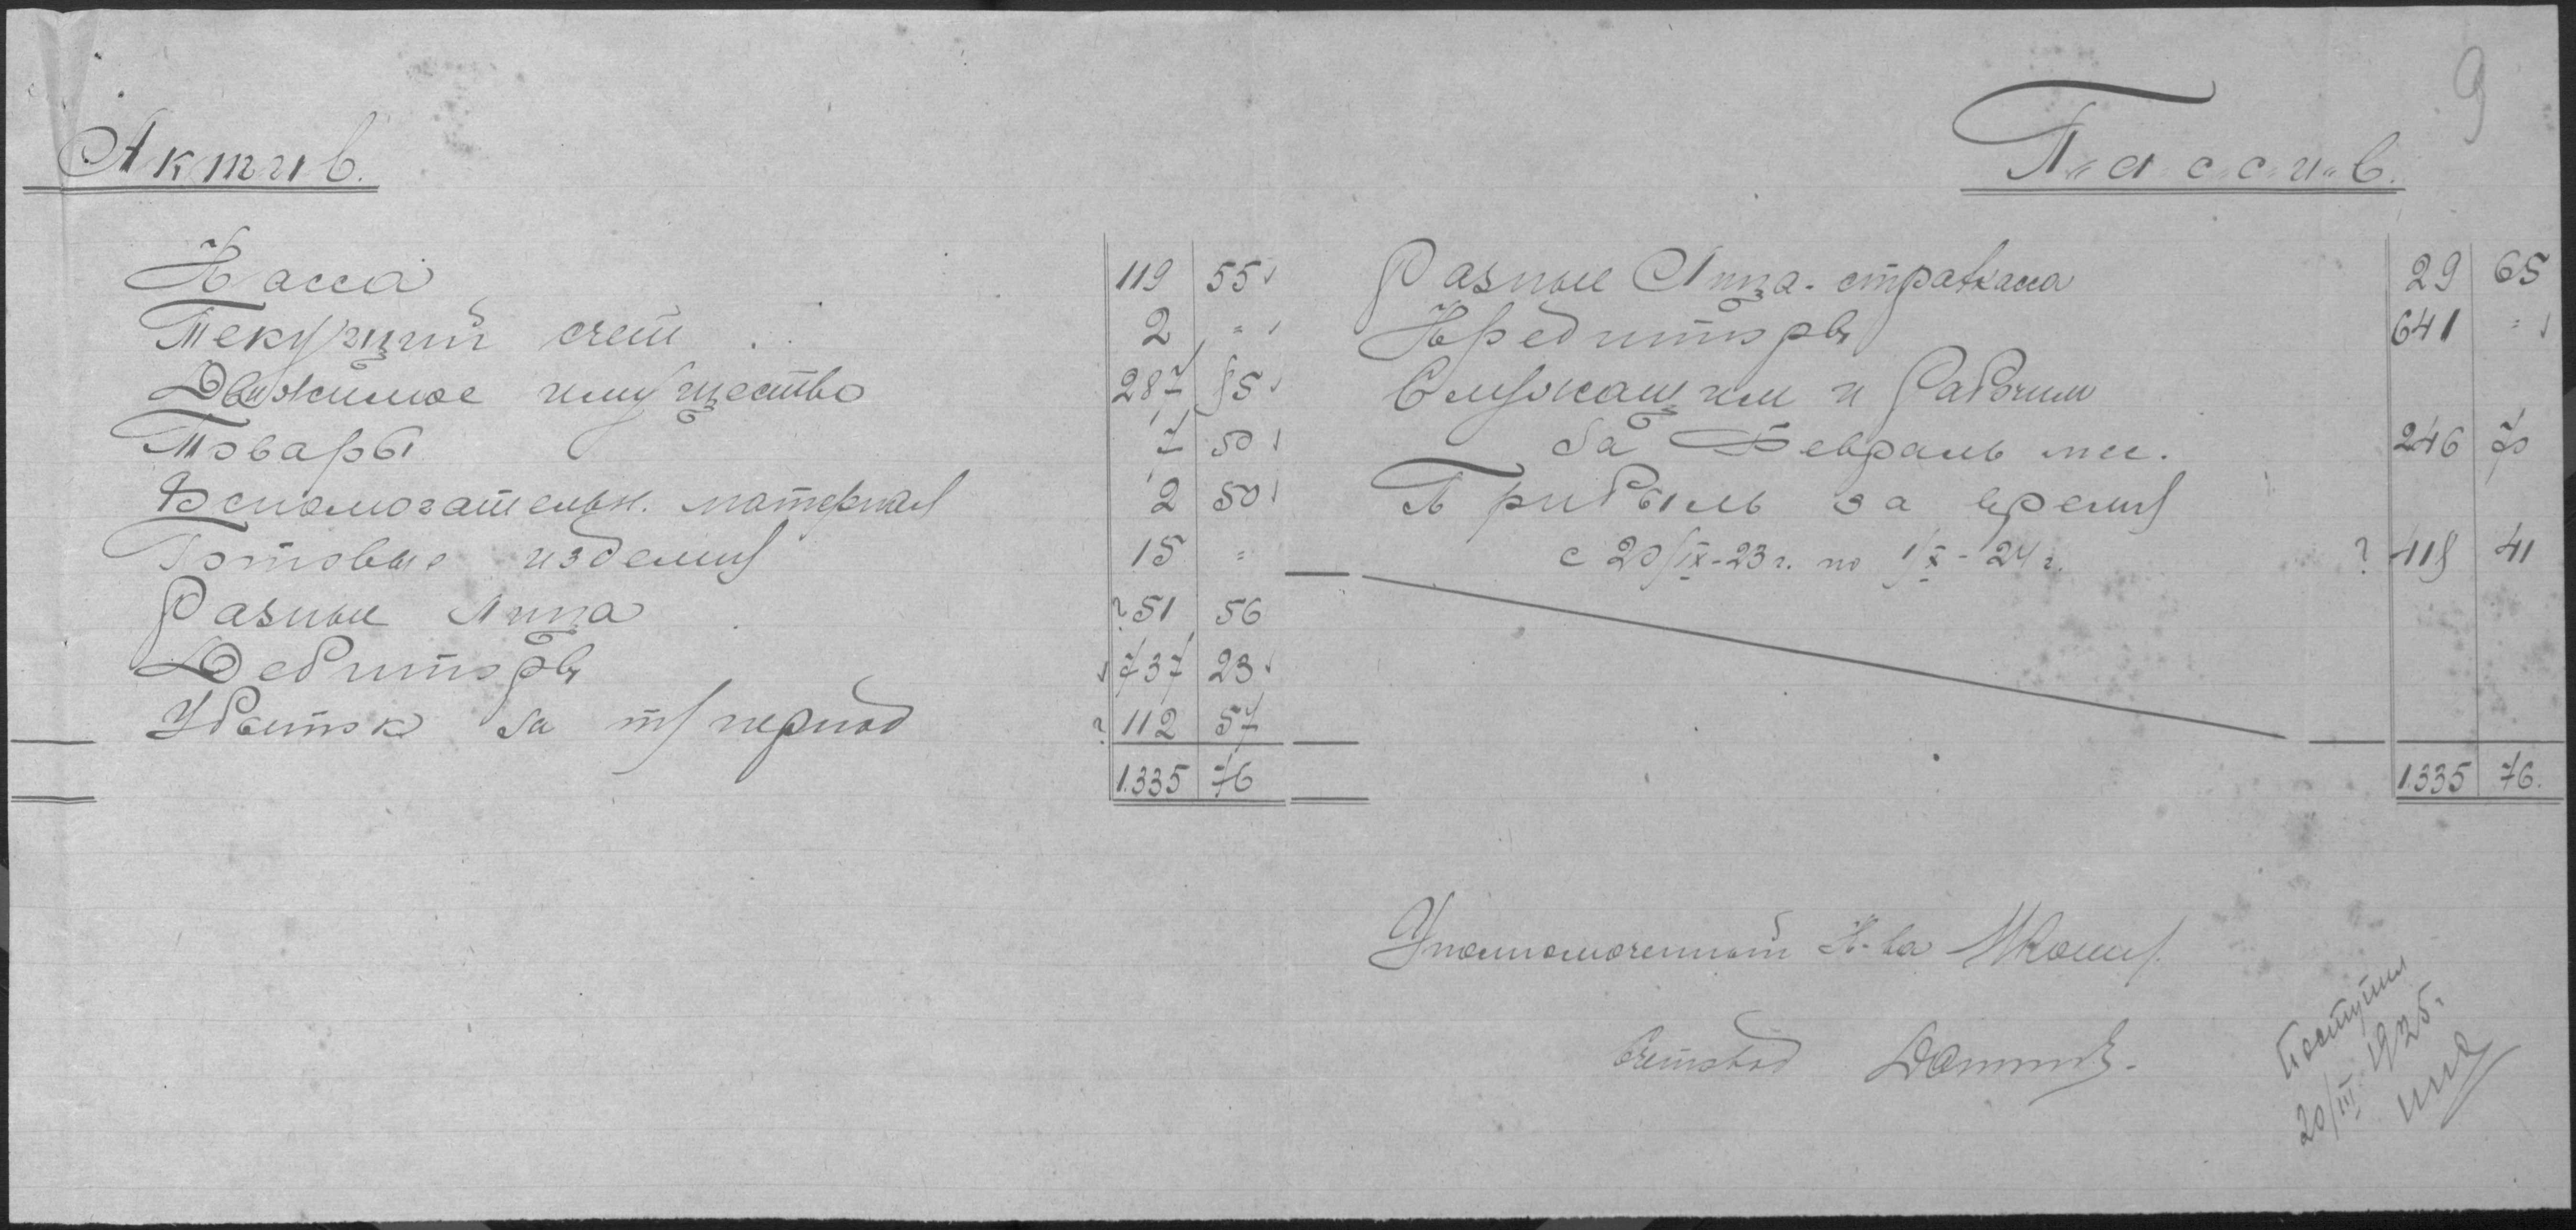 9
Актив.
Касса 119 55
Текущий счет 2 "
Движимое имущество 287 85
Товары 7 50
Вспомогательн. материал 2 50
Готовые изделия 15 "
Разные лица ? 51 56
Дебиторы 737 23
Убыток за т/период ? 112 57
1.335 76
П"а"с"с"и"в.
Разные лица - страхкасса 29 65
Кредиторы 641 "
Служащим и рабочим
за Февраль м-ц. 246 70
Прибыль за время
с 20/IX-23 г. по 1/X-24 г. ? 418 41
1.335 76.
Уполномоченный К-ва
Счетовод
Поступил
20/III 1925 г.